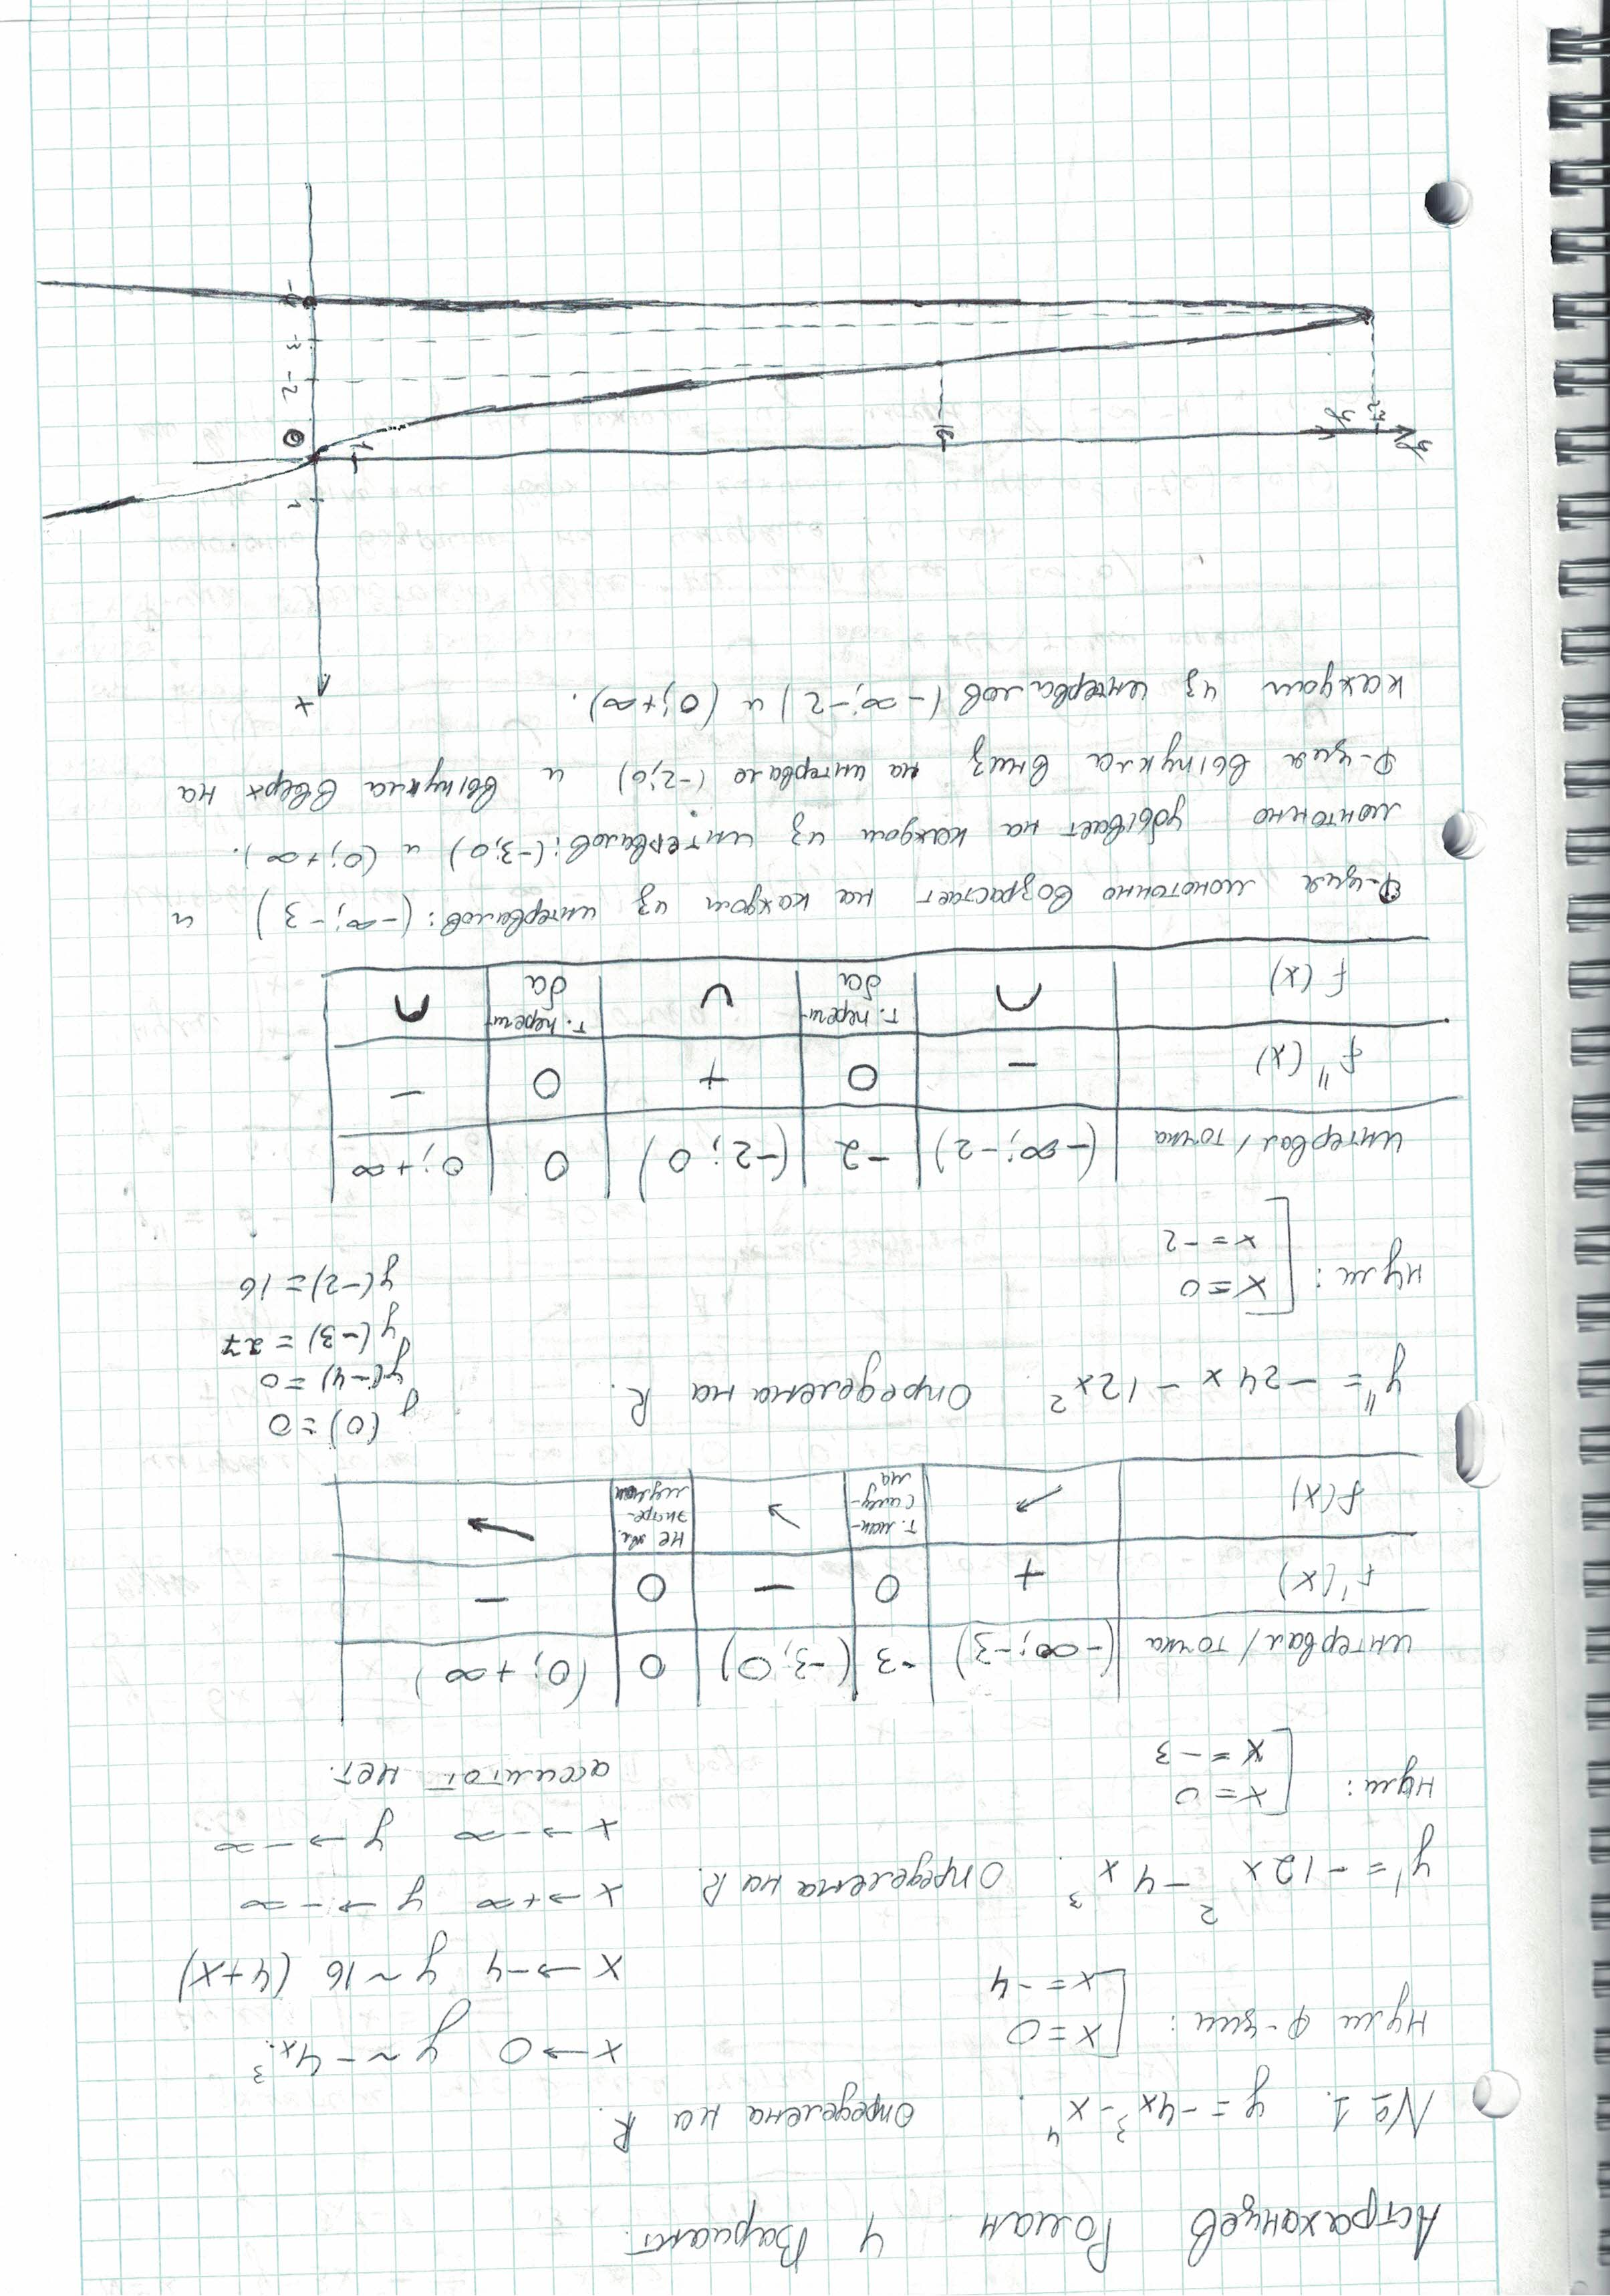 Астраханцев Роман 4 Вариант.
№ 1. y = -4x³ - x⁴. Определена на R.
нули ф-ции: [ x = 0
x = -4
x → 0 y ~ -4x³
x → -4 y ~ 16 (4+x)
x → +∞ y → -∞
x → -∞ y → -∞
ассимтот нет.
y' = -12x² - 4x³. Определена на R.
нули: [ x = 0
x = -3
интервал/точка (-∞; -3) -3 (-3; 0) 0 (0; +∞)
f'(x) + 0 − 0 −
f(x) ↗ т. максимума ↘ не явл. экстремумом ↘
y'' = -24x - 12x² Определена на R.
y(0) = 0
y(-4) = 0
y(-3) = 27
y(-2) = 16
нули: [ x = 0
x = -2
интервал/точка (-∞; -2) -2 (-2; 0) 0 0; +∞
f''(x) − 0 + 0 −
f(x) ∩ т. перегиба ∪ т. перегиба ∩
Ф-ция монотонно возрастает на каждом из интервалов: (-∞; -3) и
монтонно убывает на каждом из интервалов: (-3; 0) и (0; +∞).
Ф-ция выпукла вниз на интервале (-2; 0) и выпукла вверх на
каждом из интервалов (-∞; -2) и (0; +∞).
x
1
y
27
y
16
1
0
-2
-3
-4